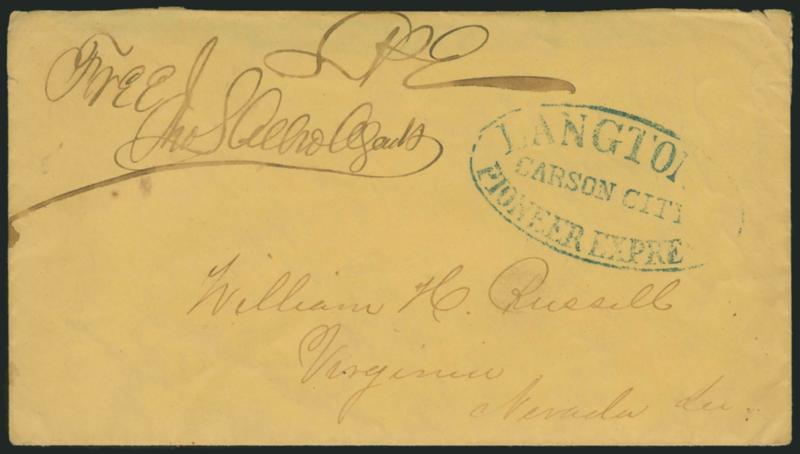 Free
P E
LANGTON
CARSON CITY
PIONEER EXPRE
William H. Russell
Virginia
Nevada